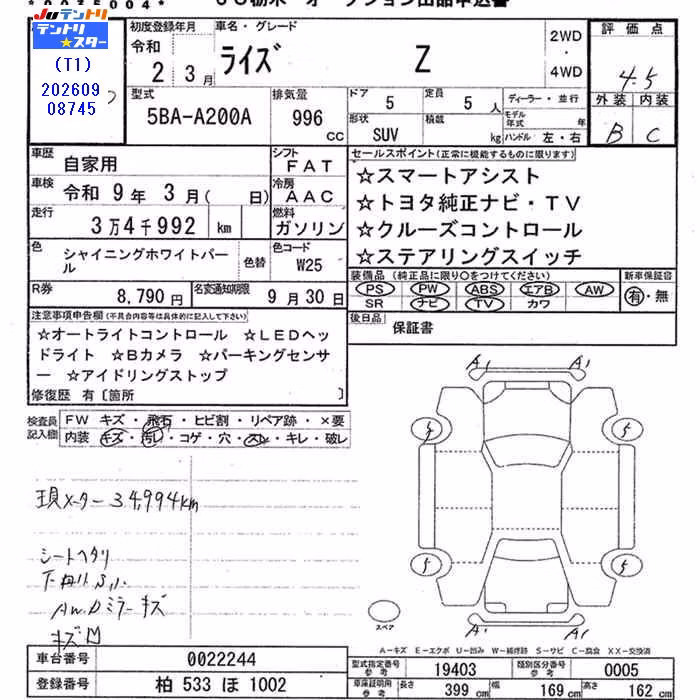 JUテントリ
テントリ★スター
(T1)
202609
08745
初度登録年月
令和
2 3月
車名・グレード
ライズ Z
2WD
・
4WD
評価点
4.5
外装 内装
B C
型式
5BA-A200A
排気量
996
cc
ドア
5
定員
5人
形状
SUV
積載
kg
ディーラー・並行
モデル年式 年
ハンドル 左・右
車歴
自家用
シフト
FAT
車検
令和 9年 3月( 日)
冷房
AAC
走行
3万4千992 km
燃料
ガソリン
色
シャイニングホワイトパール
色替
色コード
W25
R券
8,790円
名変通知期限
9月30日
セールスポイント(正常に機能するものに限ります)
☆スマートアシスト
☆トヨタ純正ナビ・TV
☆クルーズコントロール
☆ステアリングスイッチ
装備品 (純正品に限り○をつけてください)
PS PW ABS エアB AW
SR ナビ TV カワ
新車保証書
有・無
後日品
保証書
注意事項申告欄(不具合内容等は具体的に記入して下さい)
☆オートライトコントロール ☆LEDヘッ
ドライト ☆Bカメラ ☆パーキングセンサ
ー ☆アイドリングストップ
修復歴 有〔箇所 〕
検査員
記入欄
FW キズ・飛石・ヒビ割・リペア跡・×要
内装 キズ・汚レ・コゲ・穴・スレ・キレ・破レ
現メーター34,994km
シートヘタリ
AWDミラーキズ
A1 A1
5 5
5 5
A1 A1
スペア
A-キズ E-エクボ U-凹み W-補修跡 S-サビ C-腐食 XX-交換済
車台番号
0022244
登録番号
柏 533 ほ 1002
型式指定番号
参考
19403
類別区分番号
参考
0005
車庫証明用
参考
長さ 399 cm
幅 169 cm
高さ 162 cm